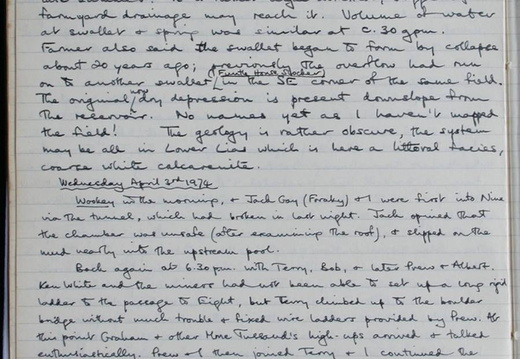 farmyard drainage may reach it. Volume of water
at swallet & spring was similar at c. 30 gpm.
Farmer also said the swallet began to form by collapse
about 20 years ago; previously the overflow had run
on to another swallet in the SE corner of the same field.
The original now dry depression is present downslope from
the reservoir. No names yet as I haven't mapped
the field! The geology is rather obscure, the system
may be all in Lower Lias which is here a littoral facies,
coarse white calcarenite.
Wednesday April 3rd 1974
Wookey in the morning, & Jack Gay (Foraky) & I were first into Nine
via the tunnel, which had broken in last night. Jack opined that
the chamber was unsafe (after examining the roof), & slipped on the
mud nearly into the upstream pool.
Back again at 6.30 pm. with Terry, Bob, & later Prew & Albert.
Ken White and the miners had not been able to set up a long rigid
ladder to the passage to Eight, but Terry climbed up to the boulder
bridge without much trouble & fixed wire ladders provided by Prew. At
this point Graham & other Mme Tussaud's high-ups arrived & talked
enthusiastically. Prew & I then joined Terry & I continued the